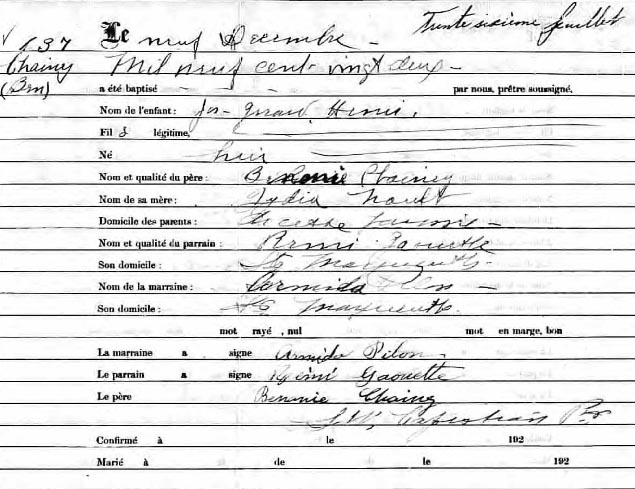 Trente sixième feuillet
137 Le neuf Décembre
Chainey Mil neuf cent vingt deux
(Brn) a été baptisé par nous, prêtre soussigné.
Nom de l'enfant: Jos- Henri,
Fil s légitime,
Né hier
Nom et qualité du père: Benonie Chainey
Nom de sa mère: Lydia
Domicile des parents:
Nom et qualité du parrain: Rémi Gaouette
Son domicile: Ste Marguerite
Nom de la marraine: Pilon
Son domicile: Ste Marguerite
mot rayé, nul mot en marge, bon
La marraine a signé Armida Pilon
Le parrain a signé Rémi Gaouette
Le père Benonie Chainey
Ptr
Confirmé à le 192
Marié à de le 192